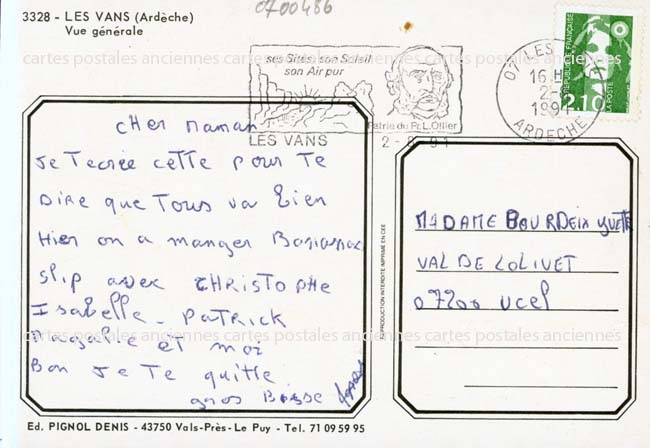 0700486
3328 - LES VANS (Ardèche)
Vue générale
cartes postales anciennes cartes postales anciennes cartes postales anciennes
ses Sites son Soleil
son Air pur
LES VANS
Patrie du Pr. L. Ollier
2-8-91
07 LES
16 H
2-8
1991
ARDECHE
REPUBLIQUE FRANÇAISE
LA POSTE
2.10
cher maman
Je Tecrée cette pour Te
Dire que Tous va bien
Hier on a manger
slip avec CHRISTOPHE
Isabelle - PATRICK
Magalie et moi
Bon Je Te quitte
gros Bisse
MADAME BOURDEIX YVETTE
VAL DE LOLIVET
07200 UCEL
REPRODUCTION INTERDITE IMPRIME EN CEE
cartes postales anciennes cartes postales anciennes cartes postales anciennes
Ed. PIGNOL DENIS - 43750 Vals-Près-Le Puy - Tel. 71 09 59 95